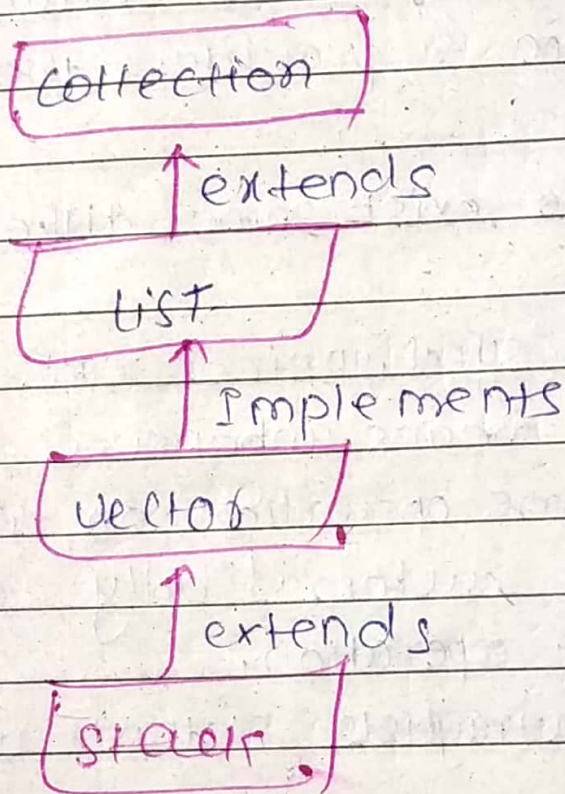 collection
extends
List
Implements
vector
extends
stack